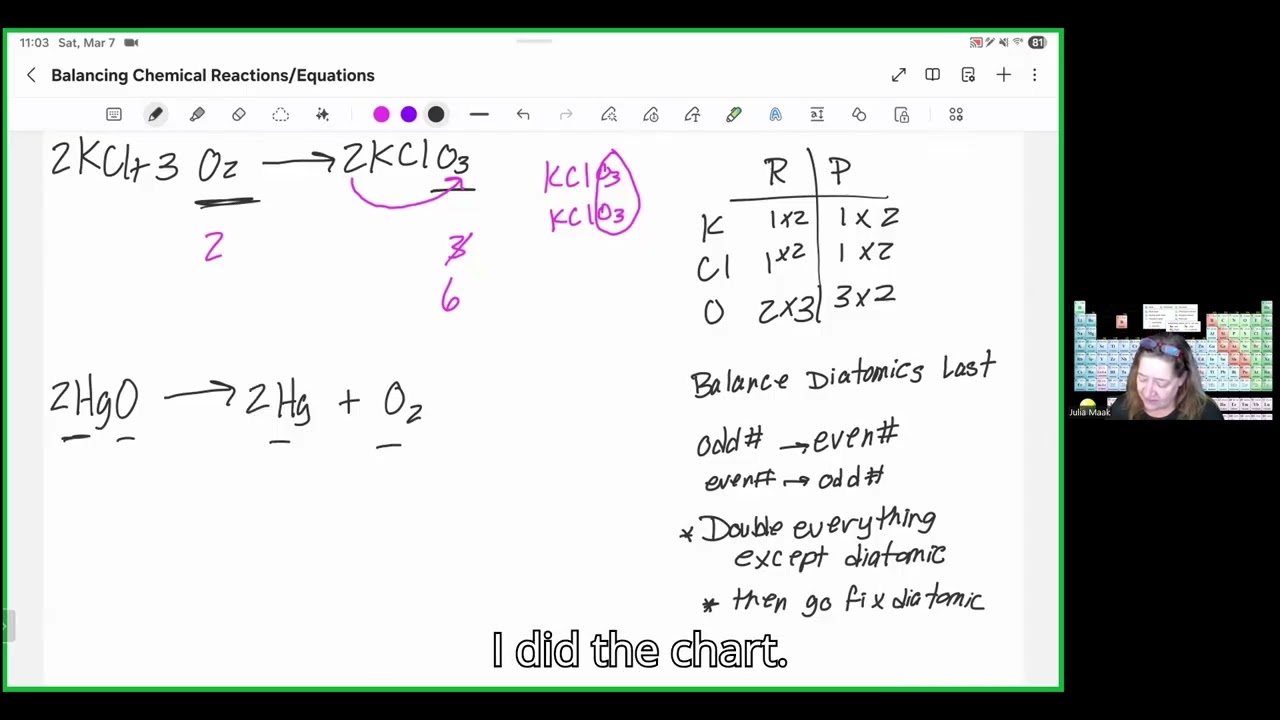 11:03 Sat, Mar 7
81
Balancing Chemical Reactions/Equations
2KCl+3 O2 → 2KClO3
2
3
6
KClO3
KClO3
R P
K 1x2 1 x 2
Cl 1x2 1 x2
O 2x3 3x2
2HgO → 2Hg + O2
Balance Diatomics Last
odd# → even#
even# → odd#
* Double everything
except diatomic
* then go fix diatomic
Julia Maak
I did the chart.